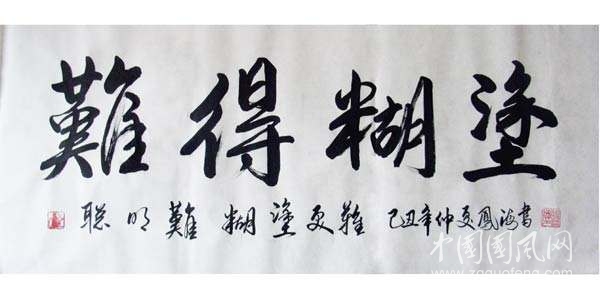 難得糊塗
聪明難糊塗更難己丑年仲夏鳳海書
中国国风网
www.zgguofeng.com